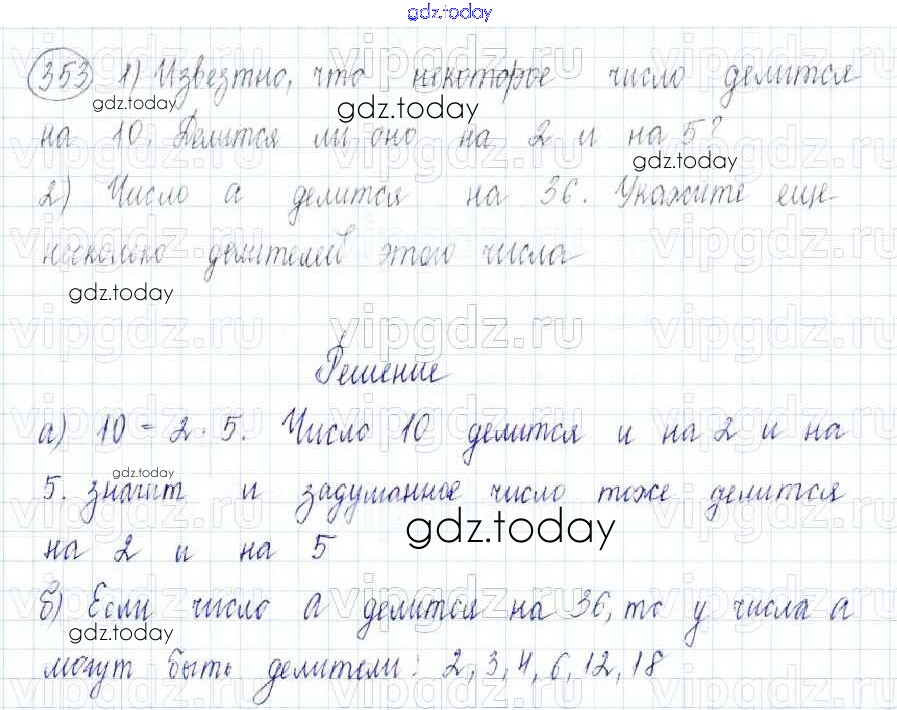 gdz.today
353 1) Извезтно, что некоторое число делится
на 10. Делится ли оно на 2 и на 5?
2) Число а делится на 36. Укажите еще
несколько делителей этого числа
Решение
а) 10 = 2 · 5. Число 10 делится и на 2 и на
5. значит и задуманное число тоже делится
на 2 и на 5
б) Если число а делится на 36, то у числа а
могут быть делители: 2, 3, 4, 6, 12, 18
gdz.today
gdz.today
gdz.today
gdz.today
gdz.today
gdz.today
gdz.today
vipgdz.ru